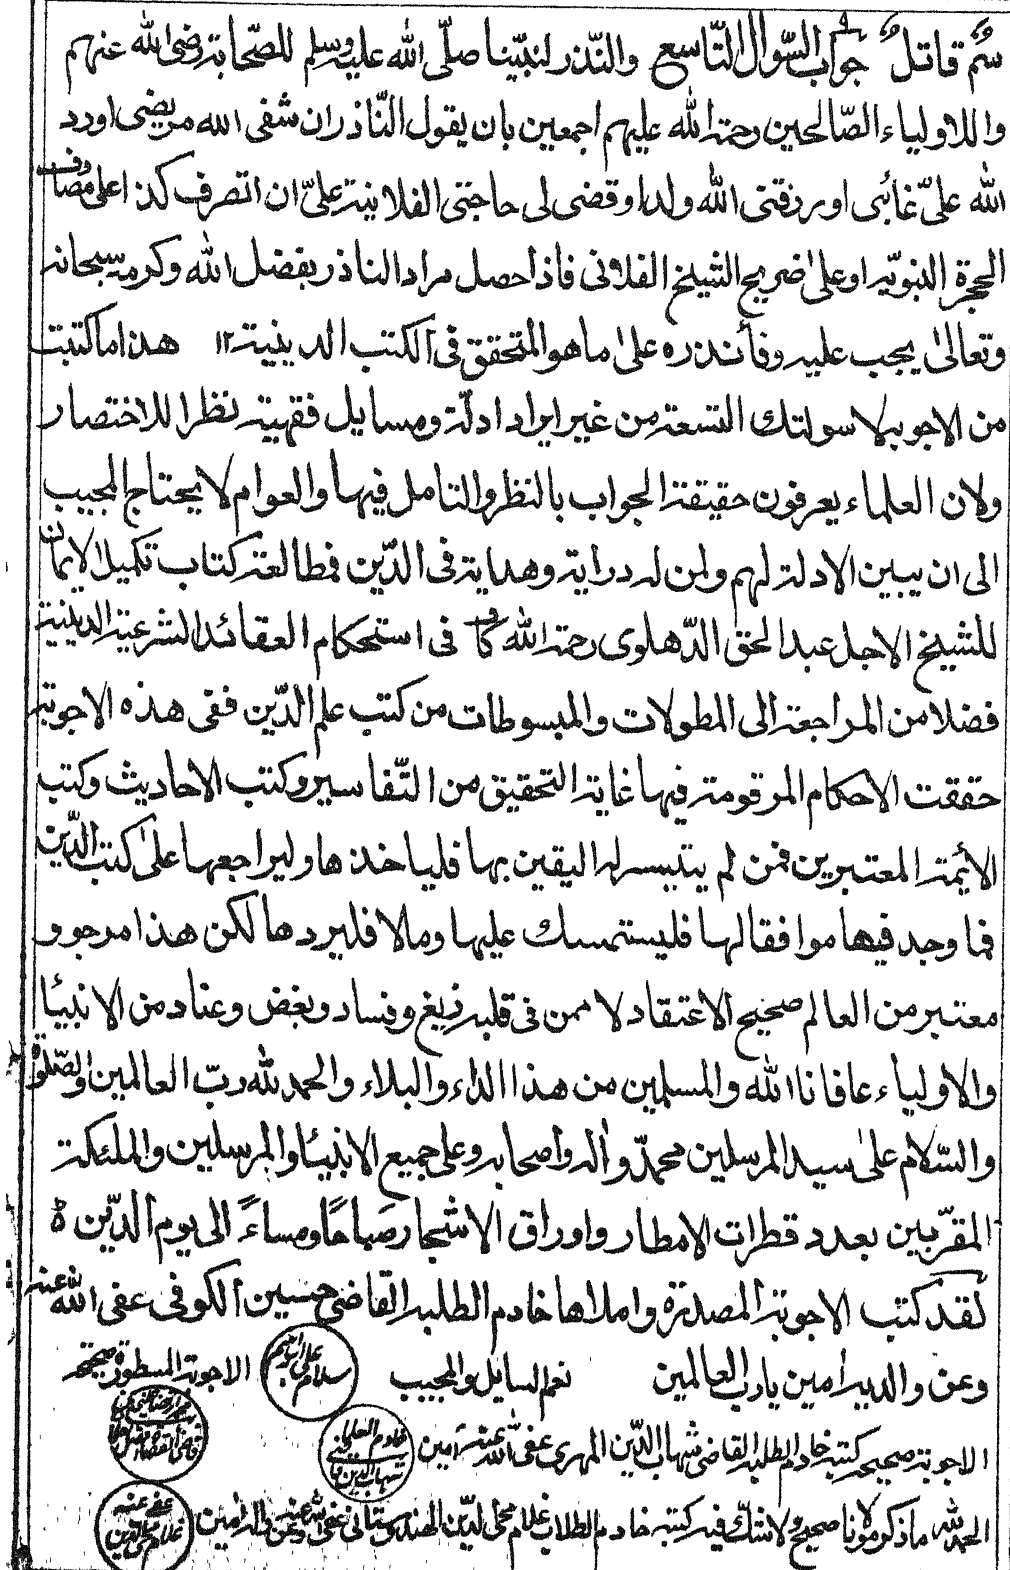 سُم قاتل جواب السّوال التّاسع والنّذر لنبيّنا صلّى الله عليه وسلم للصّحابة رضى الله عنهم
واللاولياء الصّالحين رحمة الله عليهم اجمعين بان يقول النّاذر ان شفى الله مريضى اورد
الله علىّ غائبى او رزقنى الله ولدا او قضى لى حاجتى الفلانية علىّ ان اتصرف كذا على مصارف
الحجرة النبويّه او على ضريح الشيخ الفلانى فاذا حصل مراد الناذر بفضل الله وكرمه سبحانه
وتعالىٰ يجب عليه وفأ نذره علىٰ ما هو المتحقق فى الكتب الدينية ١٢ هذا ما كتبت
من الاجوبه لاسولتك التسعة من غير ايراد ادلّة ومسايل فقهية نظرا للاختصار
ولان العلماء يعرفون حقيقة الجواب بالنظر والتامل فيها والعوام لا يحتاج المجيب
الى ان يبين الادلة لهم ولمن له دراية وهداية فى الدّين فمطالعة كتاب تكميل الايمان
للشيخ الاجل عبد الحق الدّهلوى رحمة الله فى استحكام العقائد الشرعية الدينية
فضلا من المراجعة الى المطولات والمبسوطات من كتب علم الدّين ففى هذه الاجوبة
حققت الاحكام المرقومة فيها غاية التحقيق من التّفاسير وكتب الاحاديث وكتب
الأيمّة المعتبرين فمن لم يتيسر له اليقين بها فلياخذها وليراجعها علىٰ كتب الدّين
فما وجد فيها موافقا لها فليستمسك عليها ومالا فليردها لكن هذا مرجو و
معتبر من العالم صحيح الاعتقاد لا ممن فى قلبه زيغ وفساد وبغض وعناد من الانبيأ
والاولياء عافانا الله والمسلمين من هذا الداء والبلاء والحمد لله ربّ العالمين والصّلوة
والسّلام علىٰ سيد المرسلين محمدّ وأله وأصحابه وعلى جميع الانبيأ والمرسلين والملئكة
المقرّبين بعدد قطرات الامطار واوراق الاشجار صَباحًا ومساءً الى يوم الدّين
لقد كتب الاجوبة المصدرة واملاها خادم الطلبه القاضى حسين الكوفى عفى الله عنه
وعن والديه أمين يا رب العالمين نعم السايل والمجيب سلام على ابراهيم الاجوبة المسطورة صحيحة
الاجوبة صحيحه كتبه خادم الطلبه القاضى شهاب الدّين المهرى عفى الله عنه أمين خادم العلما قاضى شهاب الدين
الحمد لله ما ذكر مولانا صحيح ولا شكّ فيه كتبه خادم الطلاب غلام محى الدّين الهندوستانى عفى الله عنه وعن والديه أمين عفى عنه غلام محى الدين